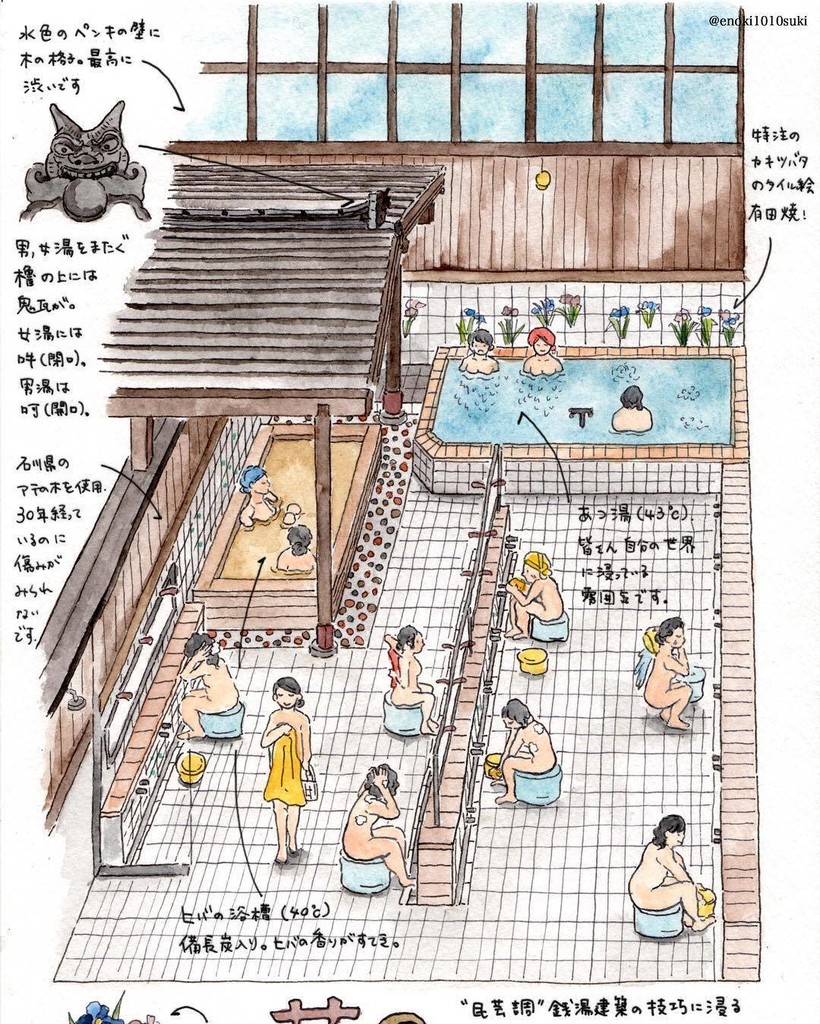 @enoki1010suki
水色のペンキの壁に
木の格子。最高に
渋いです
特注の
カキツバタ
のタイル絵
有田焼!
男,女湯をまたぐ
櫓の上には
鬼瓦が。
女湯には
吽(閉口)。
男湯は
呵(開口)。
石川県の
アテの木を使用.
30年経って
いるのに
傷みが
みられ
ない
です.
あつ湯(43℃).
皆さん自分の世界
に浸っている
雰囲気です。
ヒバの浴槽(40℃)
備長炭入り。ヒバの香りがすてき。
"民芸調"銭湯建築の技巧に浸る